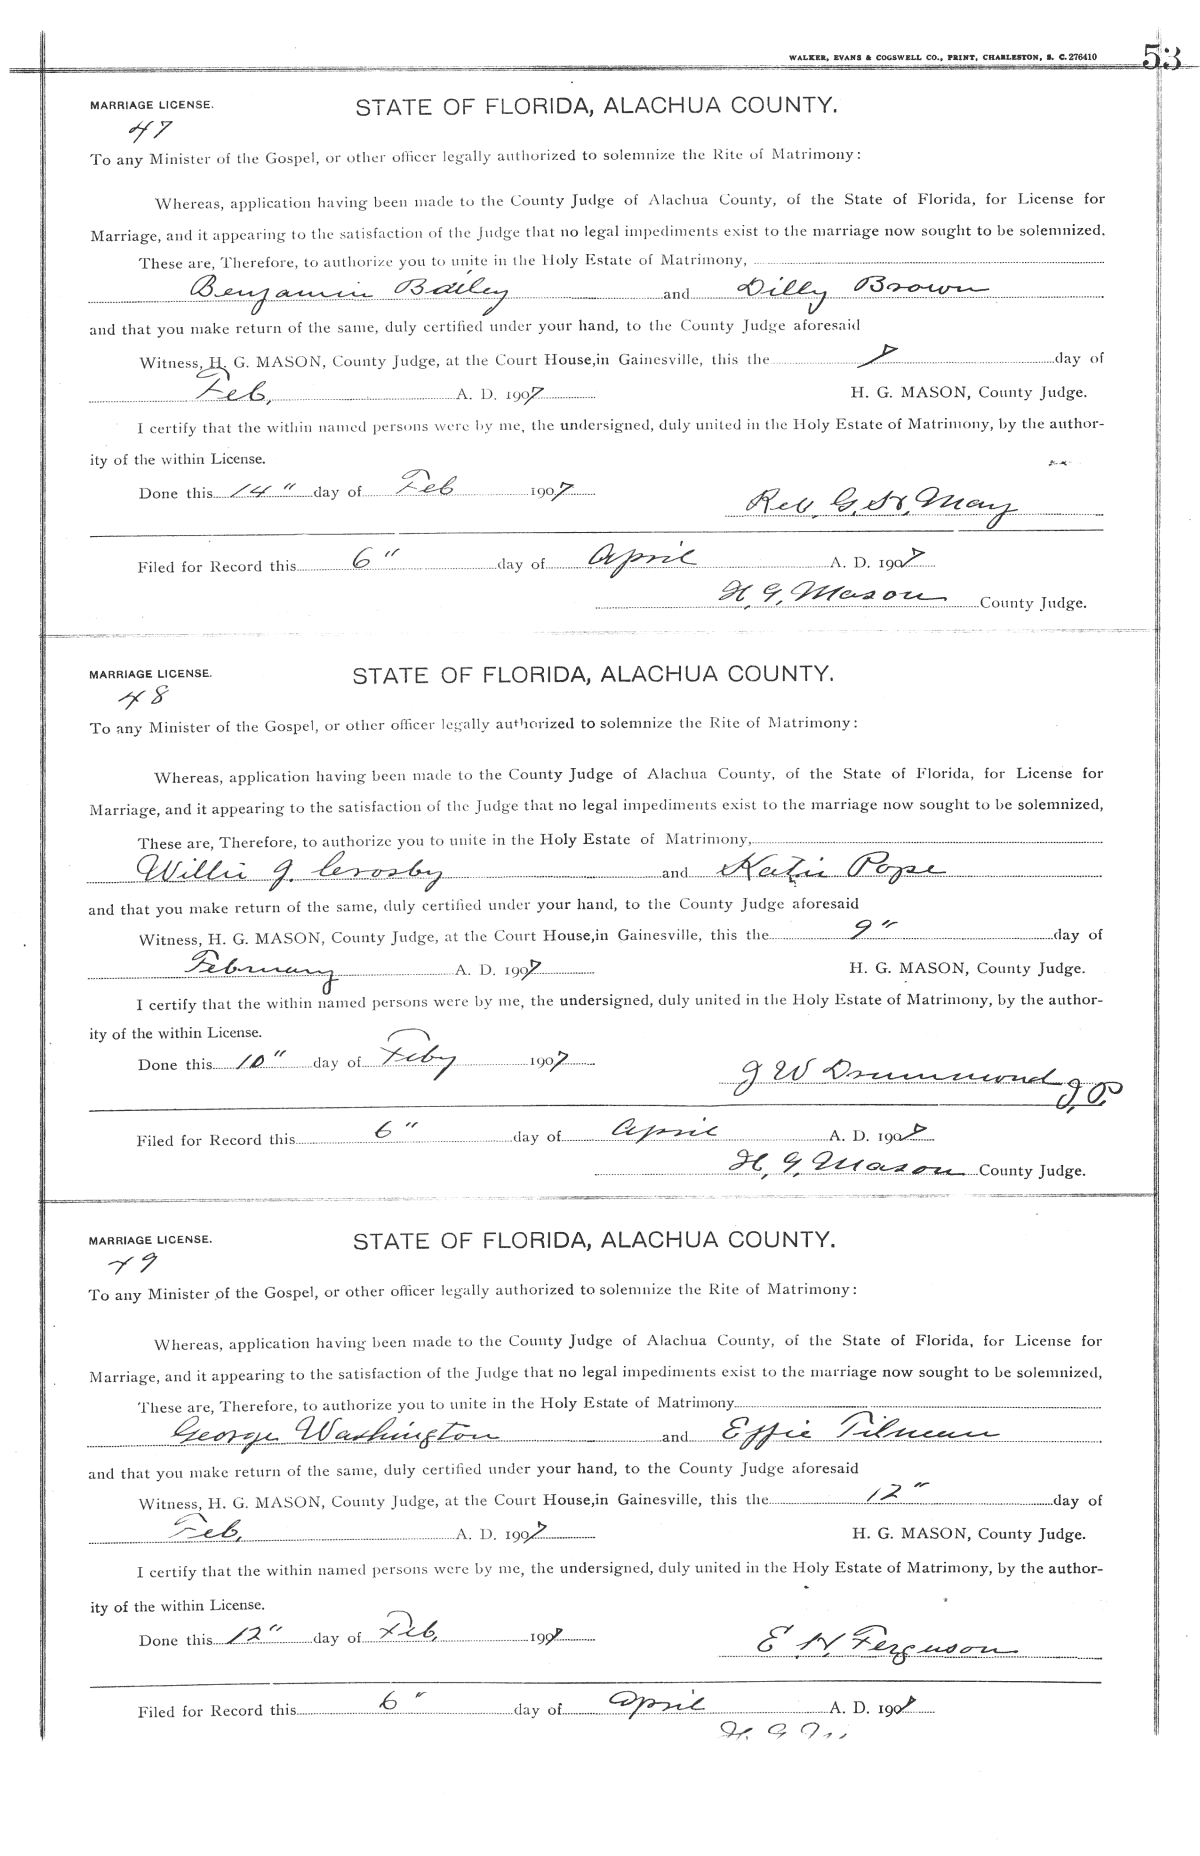 WALKER, EVANS & COGSWELL CO., PRINT, CHARLESTON, S. C. 276410
53
MARRIAGE LICENSE.
STATE OF FLORIDA, ALACHUA COUNTY.
47
To any Minister of the Gospel, or other officer legally authorized to solemnize the Rite of Matrimony:
Whereas, application having been made to the County Judge of Alachua County, of the State of Florida, for License for
Marriage, and it appearing to the satisfaction of the Judge that no legal impediments exist to the marriage now sought to be solemnized.
These are, Therefore, to authorize you to unite in the Holy Estate of Matrimony,
Benjamin Bailey and Dilly Brown
and that you make return of the same, duly certified under your hand, to the County Judge aforesaid
Witness, H. G. MASON, County Judge, at the Court House, in Gainesville, this the 7 day of
Feb, A. D. 1907 H. G. MASON, County Judge.
I certify that the within named persons were by me, the undersigned, duly united in the Holy Estate of Matrimony, by the author-
ity of the within License.
Done this 14" day of Feb 1907
Rev. G. H. May
Filed for Record this 6" day of April A. D. 1907
H. G. Mason County Judge.
MARRIAGE LICENSE.
STATE OF FLORIDA, ALACHUA COUNTY.
48
To any Minister of the Gospel, or other officer legally authorized to solemnize the Rite of Matrimony:
Whereas, application having been made to the County Judge of Alachua County, of the State of Florida, for License for
Marriage, and it appearing to the satisfaction of the Judge that no legal impediments exist to the marriage now sought to be solemnized,
These are, Therefore, to authorize you to unite in the Holy Estate of Matrimony,
Willie J. Crosby and Katie Pope
and that you make return of the same, duly certified under your hand, to the County Judge aforesaid
Witness, H. G. MASON, County Judge, at the Court House, in Gainesville, this the 9" day of
February A. D. 1907 H. G. MASON, County Judge.
I certify that the within named persons were by me, the undersigned, duly united in the Holy Estate of Matrimony, by the author-
ity of the within License.
Done this 10" day of Feby 1907
J W Drummond J. P.
Filed for Record this 6" day of April A. D. 1907
H. G. Mason County Judge.
MARRIAGE LICENSE.
STATE OF FLORIDA, ALACHUA COUNTY.
49
To any Minister of the Gospel, or other officer legally authorized to solemnize the Rite of Matrimony:
Whereas, application having been made to the County Judge of Alachua County, of the State of Florida, for License for
Marriage, and it appearing to the satisfaction of the Judge that no legal impediments exist to the marriage now sought to be solemnized,
These are, Therefore, to authorize you to unite in the Holy Estate of Matrimony
George Washington and Effie Tilman
and that you make return of the same, duly certified under your hand, to the County Judge aforesaid
Witness, H. G. MASON, County Judge, at the Court House, in Gainesville, this the 12" day of
Feb, A. D. 1907 H. G. MASON, County Judge.
I certify that the within named persons were by me, the undersigned, duly united in the Holy Estate of Matrimony, by the author-
ity of the within License.
Done this 12" day of Feb, 1907
E H Ferguson
Filed for Record this 6" day of April A. D. 1907
H. G